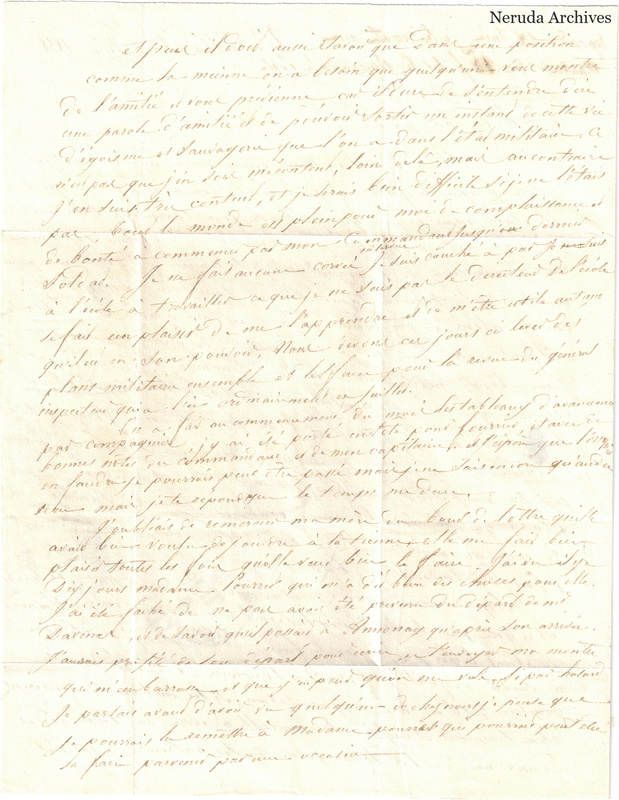 Neruda Archives
et puis il doit aussi savoir que dans une position
comme la mienne on a besoin que quelqu'un vous montre
de l'amitié et vous prévienne car d'entendre dire
une parole d'amitié et de pouvoir sortir un instant de cette vie
d'égoisme et sauvagerie que l'on a dans l'état militaire. Ce
n'est pas que j'en sois mécontent, loin de là, mais au contraire
j'en suis très content, et je serais bien difficile si je ne l'étais
pas tout le monde est plein pour moi de complaisance et
de bonté à commencer par mon Commandant jusqu'au dernier
soldat. Je ne fais aucune corvée je suis couché à part je suis
à l'école à travailler ce que je ne sais pas le directeur de l'école
se fait un plaisir de me l'apprendre et de m'être utile autant
qu'il en son pouvoir, nous devons ces jours ci lever des
plans militaires ensemble et les faire pour la revue du général
inspecteur qui a lieu ordinairement en juillet.
fait au commencement du mois des tableaux d'avancement
par compagnies j'y ai été porté pour fourrier, et avec de
bonnes notes du commandant et de mon capitaine. et j'espère que
je pourrais peut être passé mais je ne sais encore quand
mais je te réponds que le temps me dure.
J'oubliais de remercier ma mère du bout de lettre qu'elle
avait bien voulu joindre à la tienne, elle me fait bien
plaisir toutes les fois qu'elle veut bien le faire. J'ai vu il y a
dix jours madame qui m'a dit bien des choses pour elle.
J'ai été faché de ne pas avoir été prévenu du départ de mr
et de savoir qu'il passait à Annonay qu'après son arrivée.
J'aurais profité de son départ pour t'envoyer ma montre
qui m'embarrasse et que j'ai peur qu'on me vole. Si par hasard
je partais avant d'avoir vu quelqu'un de chez nous je pense que
je pourrais la remettre à Madame qui pourrait peut être
la faire parvenir par une occasion